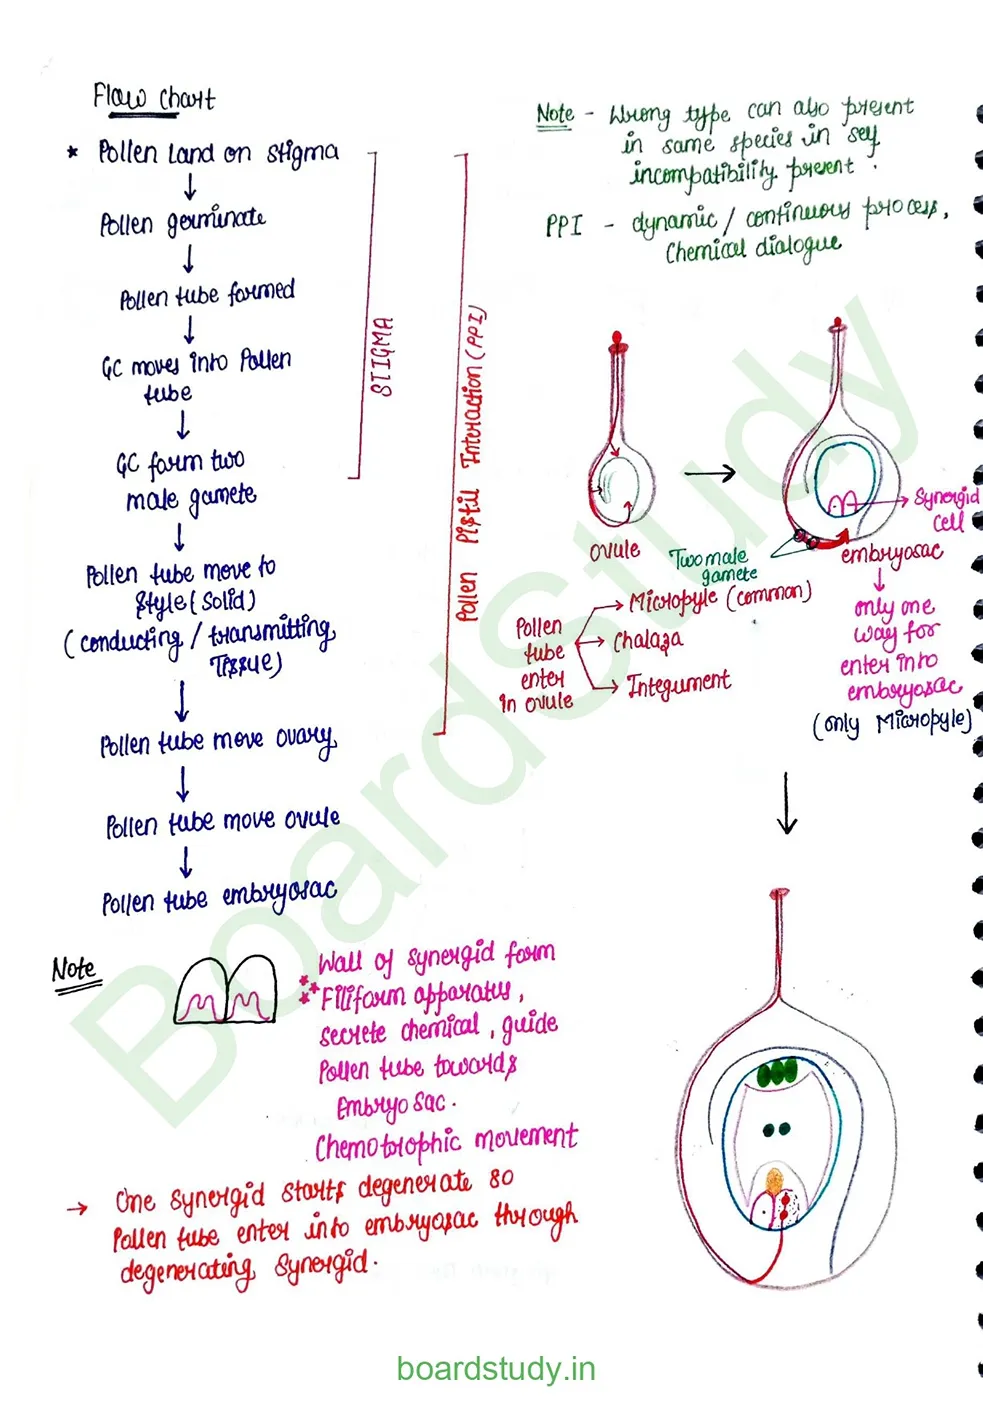 Flow chart
* Pollen Land on stigma
Pollen germinate
Pollen tube formed
GC moves into Pollen
tube
GC form two
male gamete
Pollen tube move to
style (solid)
(conducting / transmitting
Tissue)
Pollen tube move ovary
Pollen tube move ovule
Pollen tube embryosac
STIGMA
Pollen Pistil Interaction (PPI)
Note - Wrong type can also present
in same species in self
incompatibility present.
PPI - dynamic / continuous process,
Chemical dialogue
ovule
Two male
gamete
Synergid
cell
embryosac
only one
way for
enter into
embryosac
(only Micropyle)
Pollen
tube
enter
in ovule
Micropyle (common)
Chalaza
Integument
Note
Wall of synergid form
Filiform apparatus,
secrete chemical, guide
Pollen tube towards
Embryo sac.
Chemotrophic movement
→ One synergid starts degenerate so
Pollen tube enter into embryosac through
degenerating synergid.
Boardstudy
boardstudy.in